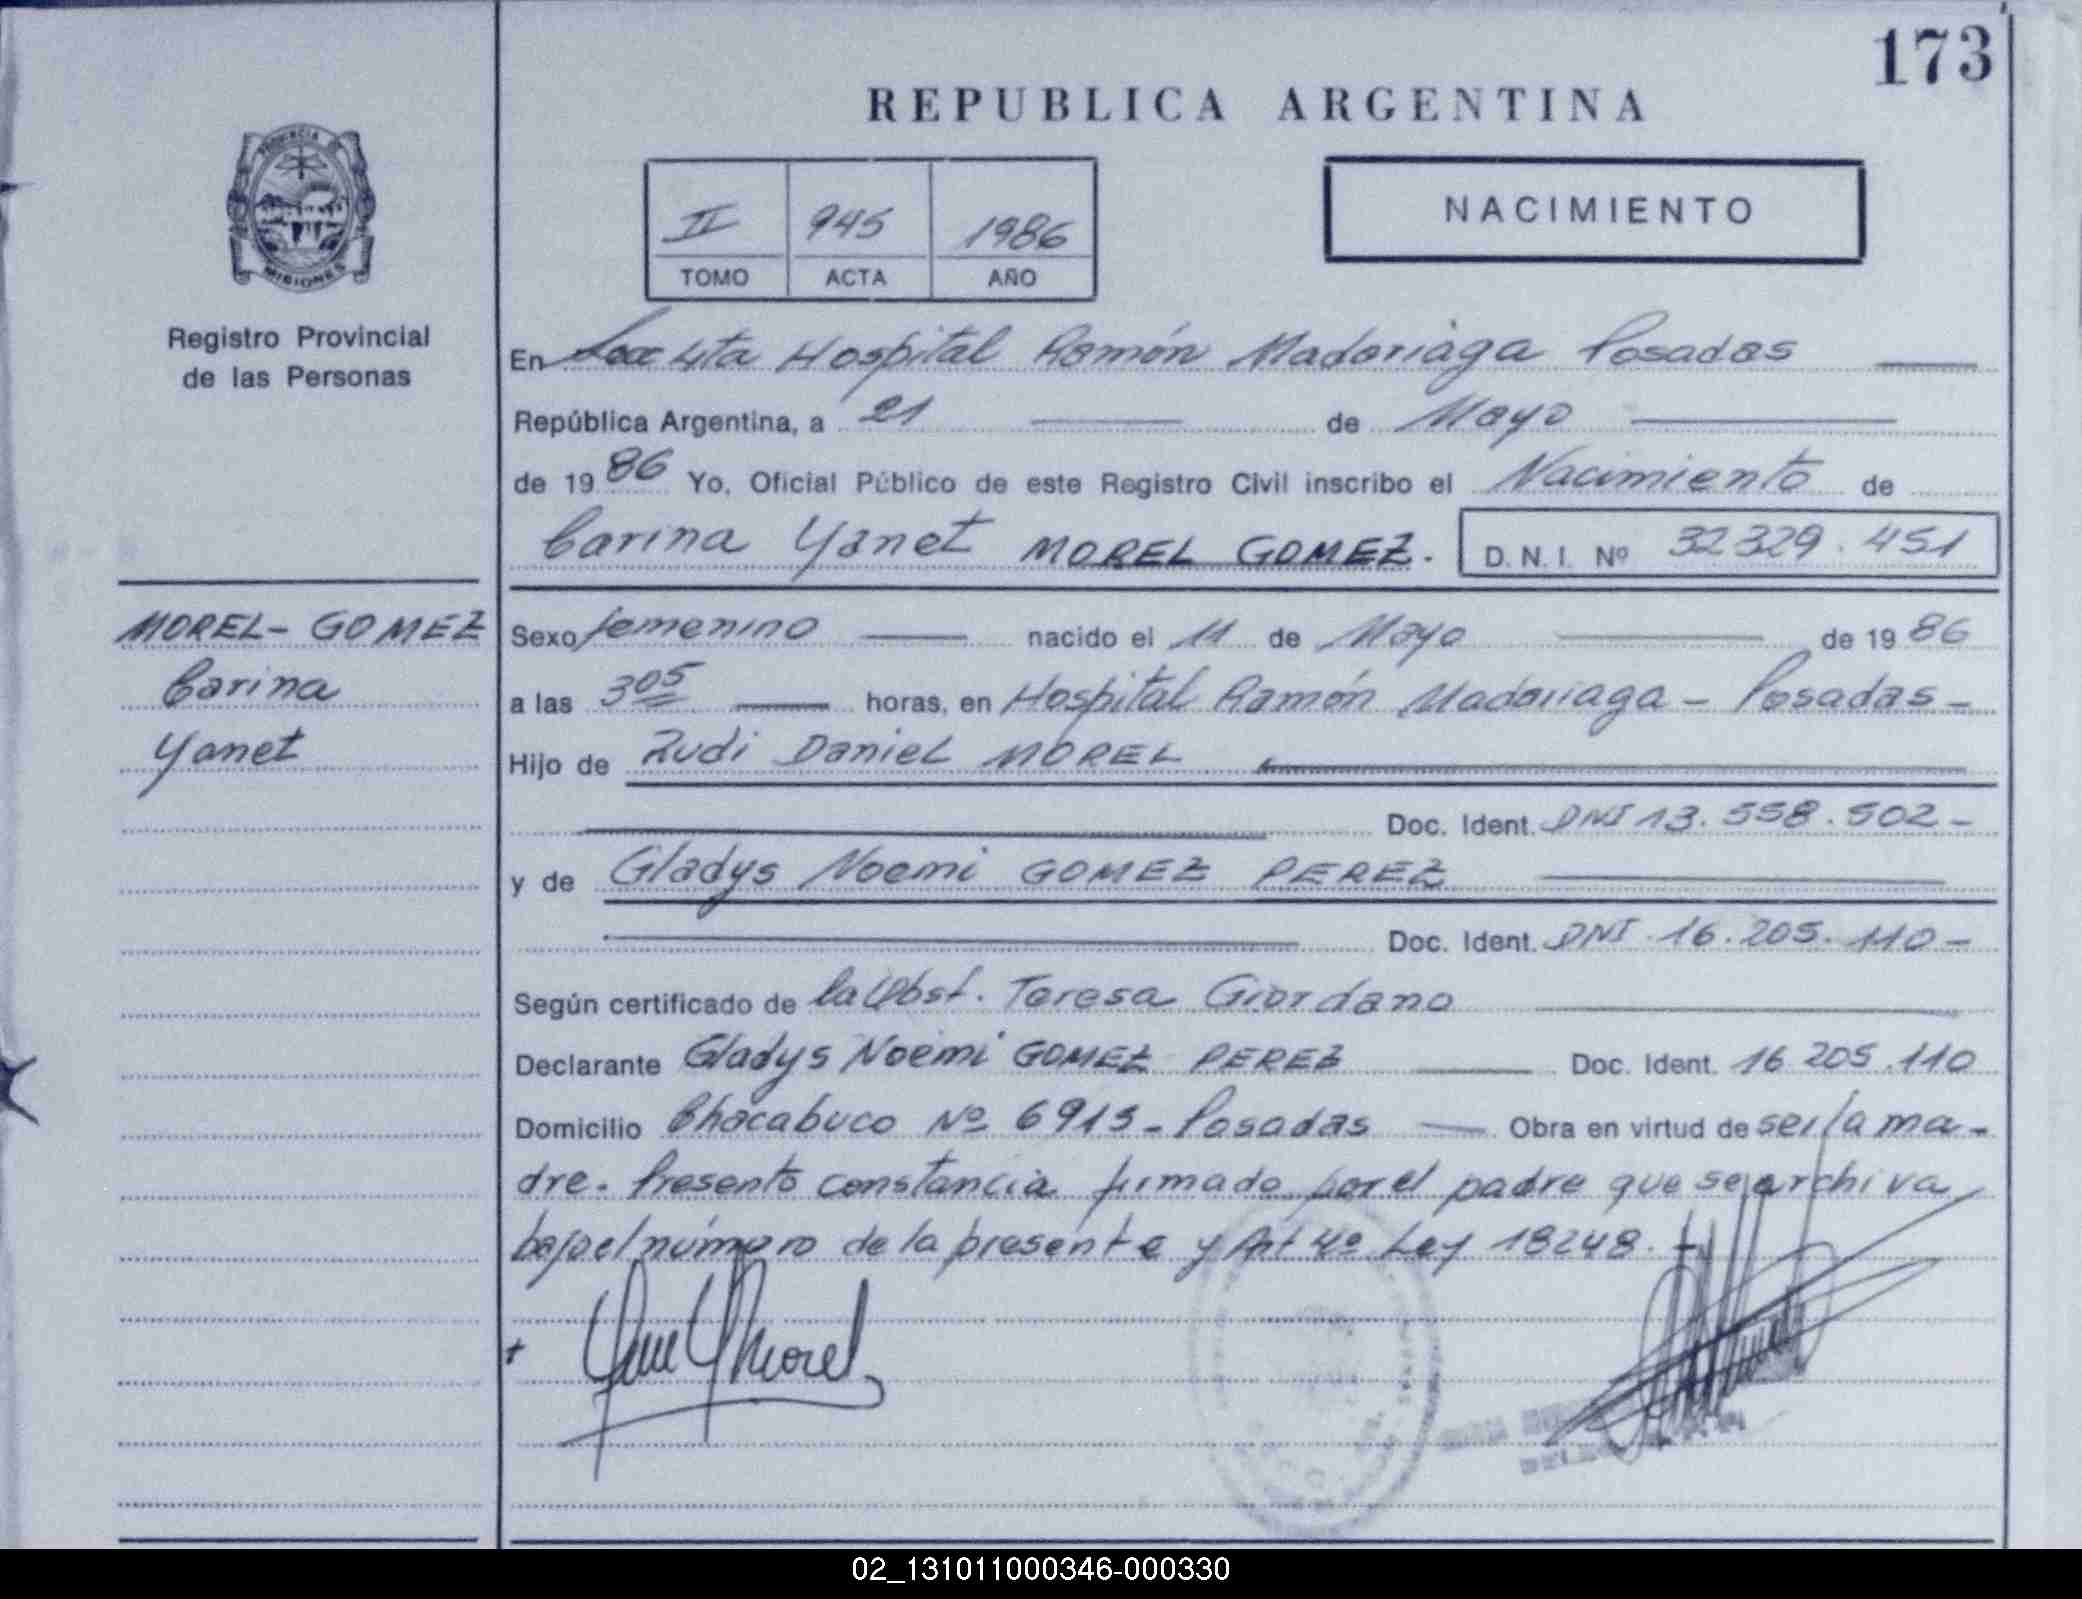 173
REPUBLICA ARGENTINA
PROVINCIA DE
MISIONES
Registro Provincial
de las Personas
II 945 1986
TOMO ACTA AÑO
NACIMIENTO
En Secc 4ta Hospital Ramón Madariaga Posadas
República Argentina, a 21 de Mayo
de 1986 Yo, Oficial Público de este Registro Civil inscribo el Nacimiento de
Carina Yanet MOREL GOMEZ. D.N.I. Nº 32329.451
MOREL-GOMEZ
Carina
Yanet
Sexo femenino nacido el 11 de Mayo de 1986
a las 305 horas, en Hospital Ramón Madariaga - Posadas -
Hijo de Rudi Daniel MOREL
Doc. Ident. DNI 13.558.502-
y de Gladys Noemi GOMEZ PEREZ
Doc. Ident. DNI 16.205.110-
Según certificado de la Obst. Teresa Giordano
Declarante Gladys Noemi GOMEZ PEREZ Doc. Ident. 16 205.110
Domicilio Chacabuco Nº 6913 - Posadas Obra en virtud de ser la ma-
dre. Presento constancia firmado por el padre que se archiva
bajo el número de la presente y Art 4º Ley 18248.-
02_131011000346-000330